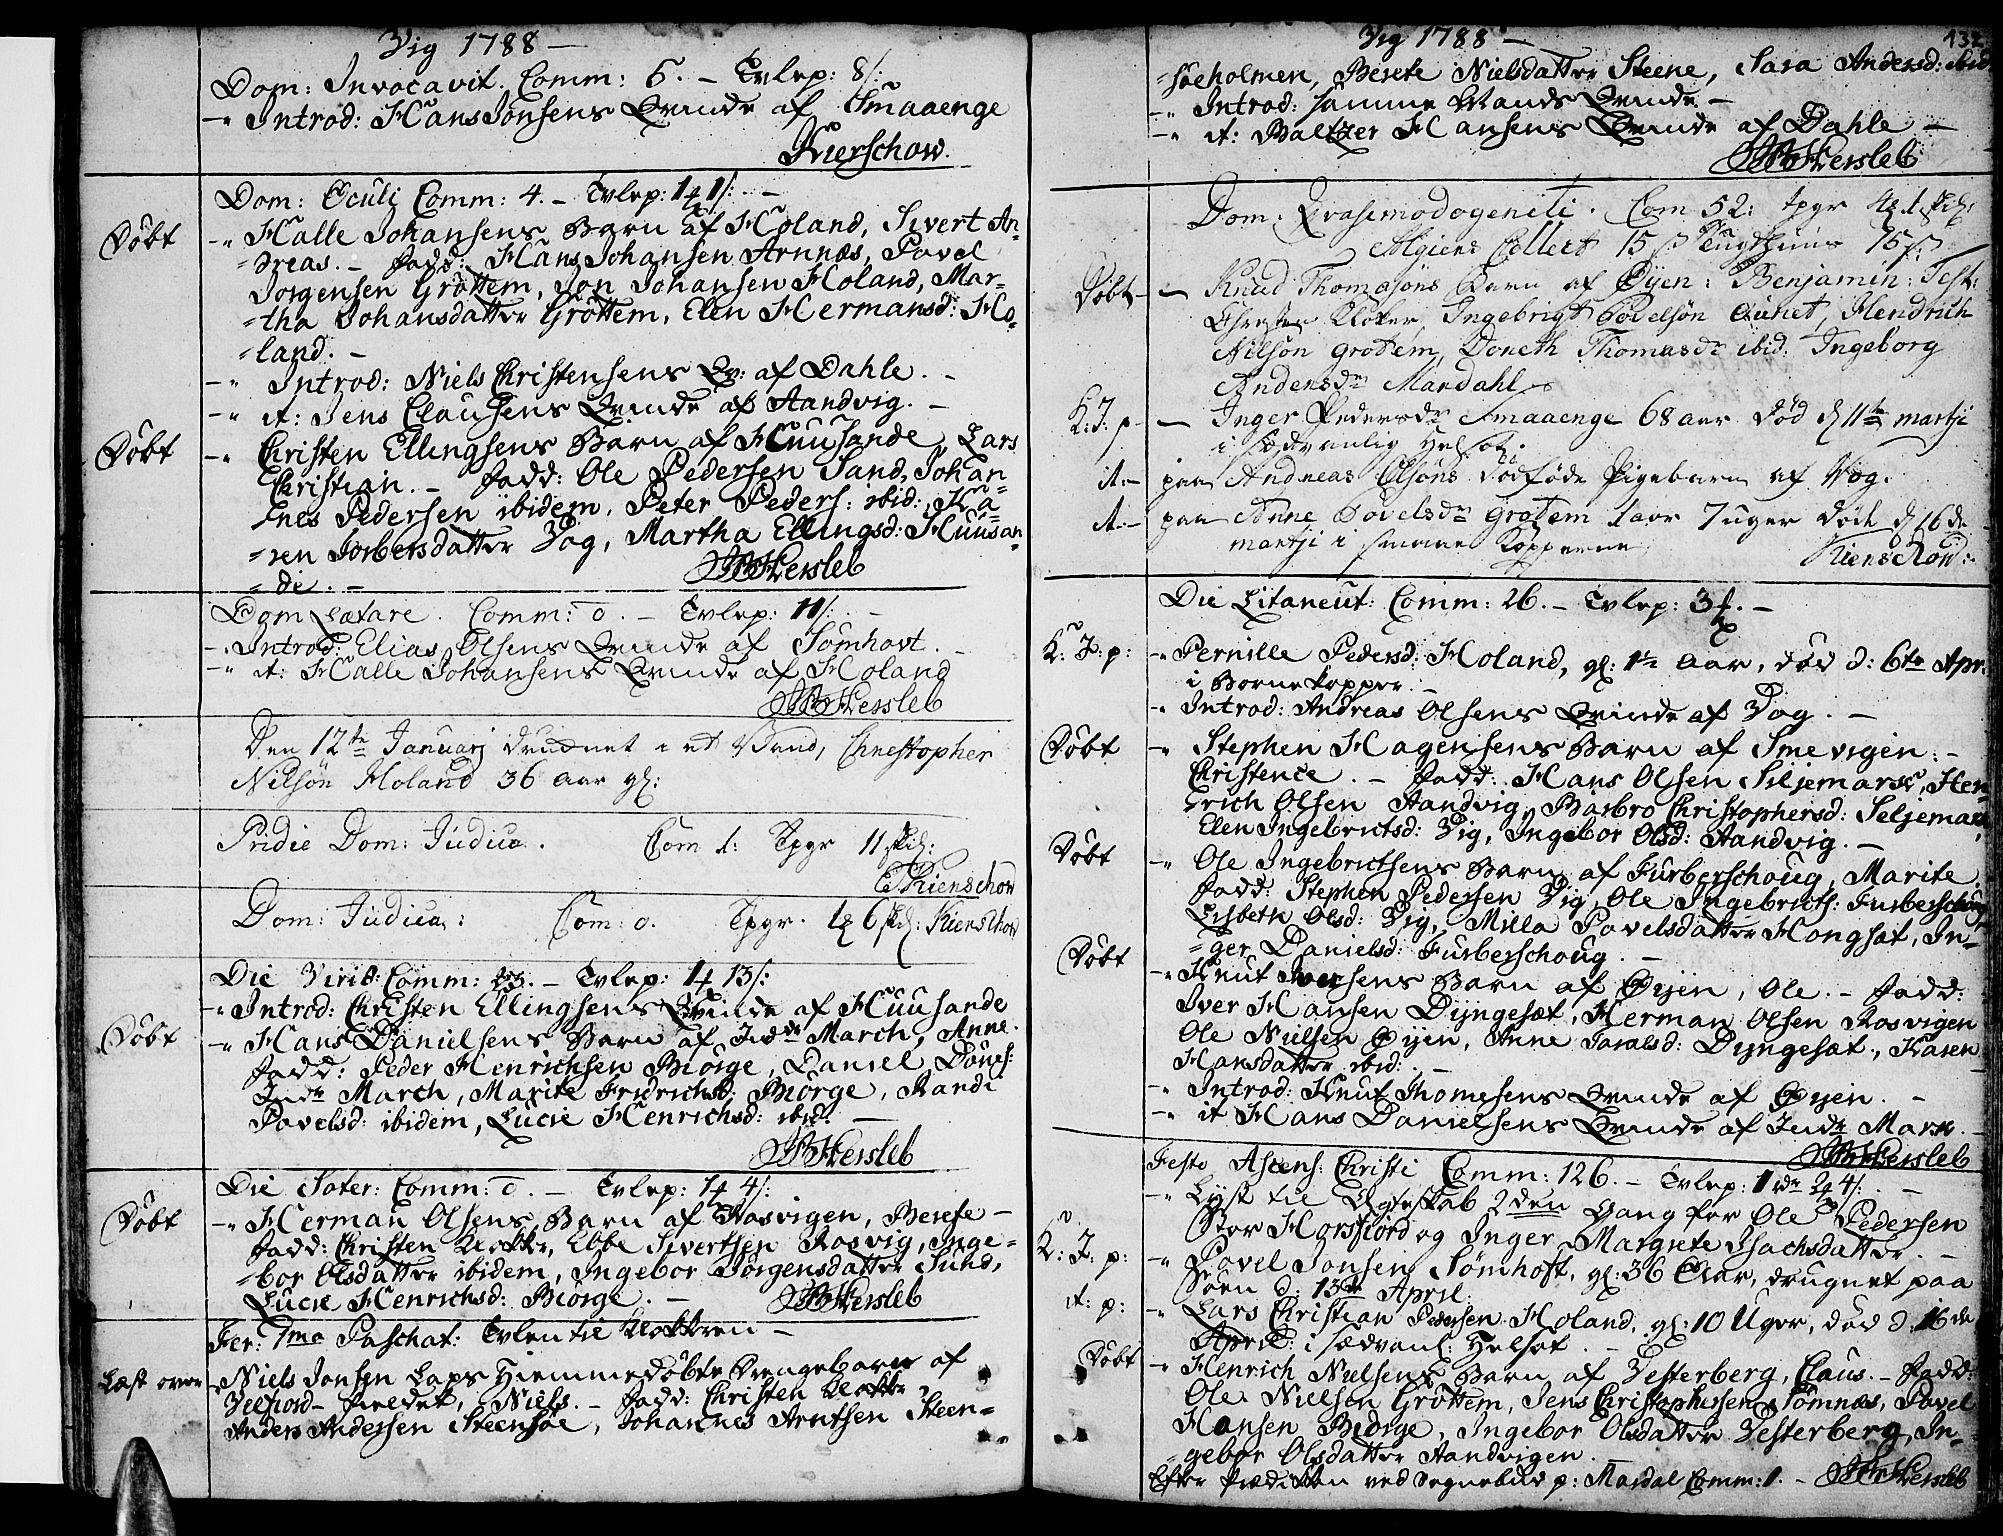 Vig 1788 —
Dom: Invocavit. Comm: 6. — Tvlep: 8/:
-" Introd: Hans Jonsens Qvinde af Smaaenge
Kierschow.
Dom: Oculi Comm: 4. — Tvlep: 1 ort 1/: —
Døbt -" Halle Johansens Barn af Holand, Sivert An=
=dreas. — fadd: Hans Johansen Arnnæs, Pavel
Jorgensen Grøttem, Jon Johansen Holand, Mar=
=tha Johansdatter Grøttem, Elen Hermansd: Ho=
=land. —
-" Introd: Niels Christensens Qv: af Dahle. —
-" it: Jens Clausens Qvinde af Aandvig. —
Døbt -" Christen Ellingsens Barn af Huusande, Lars
Christian. — fadd: Ole Pedersen Sand, Johan=
=nes Pedersen ibidem, Peter Peders: ibid: Ka=
=ren Torbersdatter Vog, Martha Ellingsd: Huusan=
=de. —
Hersleb
Dom Lætare. Comm: 0. — Tvlep: 11/: —
-" Introd: Elias Olsens Qvinde af Sømhovt. —
-" it: Halle Johansens Qvinde af Holand
Hersleb
Den 12te Januarj drudnet i et Vand, Christopher
Nilsøn Holand 36 aar gl:
Pridie Dom: Judica. Com 1: Tpgr 11 skil:
Kierschow
Dom: Judica: Com: 0. Tpgr. 1 ort 6 skl: Kierschow
Die Virid: Comm: 23. — Tvlep: 1 ort 13/:
-" Introd: Christen Ellingsens Qvinde af Huusande
Døbt -" Hans Danielsens Barn af Indr March, Anne.
fadd: Peder Henrichsen Biørge, Daniel Dønes:
Indr March, Marite Fridrichsd: Biørge, Randi
Pavelsd: ibidem, Lucie Henrichsd: ibid: —
Hersleb
Die Sater: Comm: 0. — Tvlep: 1 ort 4/:
Døbt -" Herman Olsens Barn af Rosvigen, Berete —
fadd: Christen Klokker, Ebbe Sivertsen Rosvig, Inge=
=bor Olsdatter ibidem, Ingebor Jørgensdatter Sund,
Lucie Henrichsd: Biørge. —
Hersleb
Fer: 1ma Paschat: Tvlen til Klokkeren —
Læst over -" Niels Jonsen Laps Hiemmedøbte Drengebarn af
Velfiord-fieldet, Niels. — fadd: Christen Klokker
Anders Andersen Steensøe, Johannes Arntsen Steen=
Vig 1788 — 132
=søeholmen, Berete Nielsdatter Steene, Sara Andersd: ibid
-" Introd: samme Mands Qvinde —
-" it: Baltzer Hansens Qvinde af Dahle —
Hersleb
Dom: Qvasimodogeniti. Com 52: Tpgr 4 ort 1 skil:
Algiers Collect 15 ß Tugthuus 15 ß
Døbt — Knud Thomasøns Barn af Øyen: Benjamin: Test:
Christen Kloker, Ingebrigt Povelsøn Aunet, Hendrich
Nilsøn Grotem, Doreth Thomasdr ibid: Ingeborg
Andersdr Mardahl
K: J: p — Inger Pedersdr Smaaenge 68 aar død d 11te martji
i sædvanlig Helsot.
it: — paa Andreas Olsøns dødføde Pigebarn af Vog.
it: — paa Anne Povelsdr Grotem 1 aar 7 uger død d 16de
martji i smaae Kopperne
Kierschow:
Die Litaneut: Comm: 26. — Tvlep: 3 ort. —
K: J: p: -" Pernille Pedersd: Holand, gl: 1½ Aar, død d: 6te Apr:
i Børnekopper. —
-" Introd: Andreas Olsens Qvinde af Vog. —
Døbt -" Stephen Hagensens Barn af Smevigen. —
Christence. — fadd: Hans Olsen Siljemark, Hen=
=drich Olsen Aandvig, Barbro Christophersd: Seljemark
Elen Ingebritsd: Vig, Ingebor Olsd: Aandvig. —
Døbt -" Ole Ingebrictsens Barn af Furberschoug, Marite.
fadd: Stephen Pedersen Vig, Ole Ingebricts: Furberschoug
Lisbeth Olsd: Vig, Milla Pavelsdatter Hongsæt, In=
=ger Danielsd: Furberschoug. —
Døbt -" Knut Iversens Barn af Øyen, Ole. — fadd:
Iver Hansen Dyngesæt, Herman Olsen Rosvigen
Ole Nielsen Øyen, Anne Taralsd: Dyngesæt, Karen
Hansdatter ibid: —
-" Introd: Knut Thomesens Qvinde af Øyen. —
-" it Hans Danielsens Qvinde af Indr Mark. —
Hersleb
Festo Ascens: Christi Comm: 126. — Tvlep: 1 rdr 2 ort 4/: —
-" Lyst til Ægteskab 2den Gang for Ole Pedersen
Stor Horsfiord og Inger Margrete Isachsdatter. —
K: J: p: -" Pavel Jonsen Sømhoft, gl: 36 Aar, drugnet paa
Søen d: 13de April.
it: p: -" Lars Christian Pedersen Holand, gl: 10 Uger, død d: 16de
April: i sædvanl: Helsot. —
Døbt -" Henrich Nielsens Barn af Vesterberg, Claus. — fadd:
Ole Nielsen Grøttem, Jens Christophersen Sømnæs, Pavel
Hansen Biørge, Ingebor Olsdatter Vesterberg, In=
=gebor Olsdatter Aandvigen.
Efter Prædiken ved Sognebud p: Mardal Comm: 1. — Hersleb